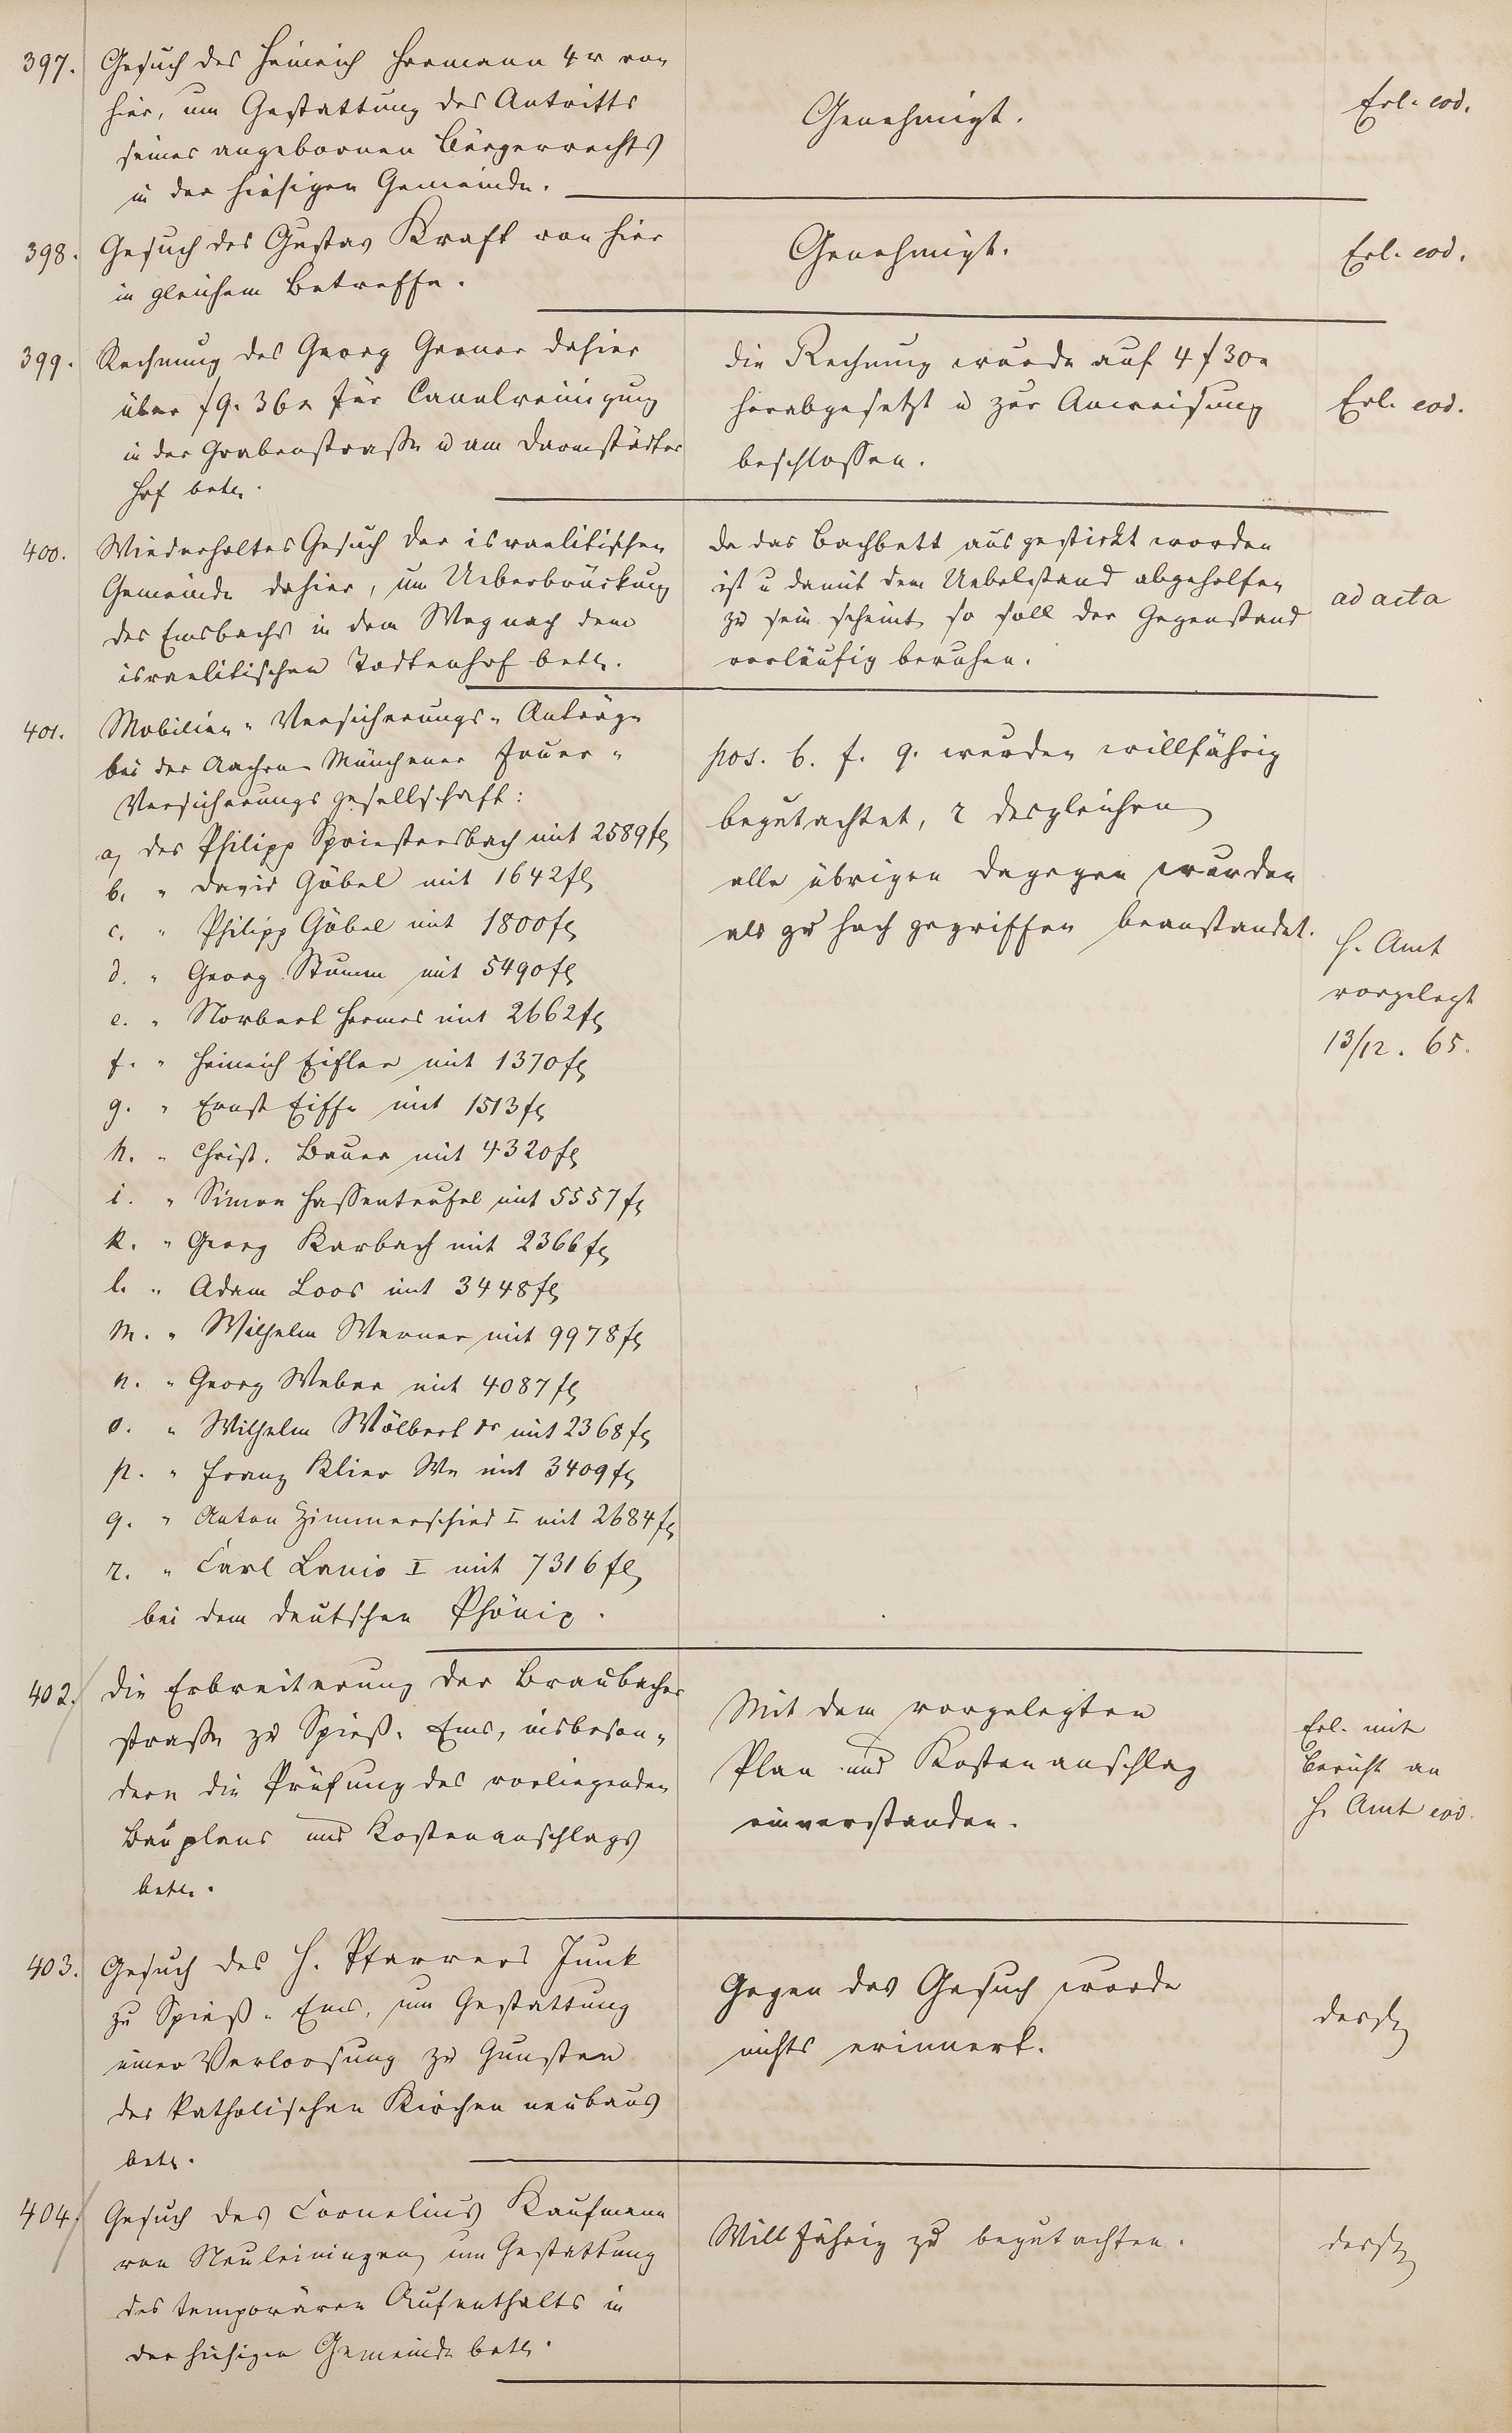 397. Gesuch des Heinrich Hermann 4r von
hier, um Gestattung des Antritts
seines angebornen Bürgerrechts
in der hiesigen Gemeinde.
Genehmigt.
Erl. eod.
398. Gesuch des Gustav Kraft von hier
in gleichem Betreffe.
Genehmigt.
Erl. eod.
399. Rechnung des Georg Gerner dahier
über f 9. 36x für Canalreinigung
in der Grabenstraße u am Darmstädter
Hof betr.
Die Rechnung wurde auf 4 f 30x
herabgesetzt u zur Anweisung
beschlossen.
Erl. eod.
400. Wiederholtes Gesuch der israelitischen
Gemeinde dahier, um Ueberbrückung
des Emsbachs in dem Weg nach dem
israelitischen Todtenhof betr.
Da das Bachbett ausgestickt worden
ist u damit dem Uebelstand abgeholfen
zu sein scheint, so soll der Gegenstand
vorläufig beruhen.
ad acta
401. Mobilien-Versicherungs-Anträge
bei der Aachen-Münchener Feuer-
Versicherungsgesellschaft:
a, des Philipp Spriestersbach mit 2589 fl
b. " David Göbel mit 1642 fl
c. " Philipp Göbel mit 1800 fl
d. " Georg Stumm mit 5490 fl
e. " Norbert Hermes mit 2662 fl
f. " Heinrich Eifler mit 1370 fl
g. " Ernst Eiffe mit 1513 fl
h. " Christ. Bauer mit 4320 fl
i. " Simon Hassenteufel mit 5557 fl
k. " Georg Karbach mit 2366 fl
l. " Adam Loos mit 3448 fl
m. " Wilhelm Werner mit 9978 fl
n. " Georg Weber mit 4087 fl
o. " Wilhelm Wölbert mit 2368 fl
p. " Franz Klier We mit 3409 fl
q. " Anton Zimmerschied I mit 2684 fl
r. " Carl Lanio I mit 7316 fl
bei dem deutschen Phönix.
pos. b. f. q. wurden willfährig
begutachtet, r desgleichen
alle übrigen dagegen wurden
als zu hoch gegriffen beanstandet.
H. Amt
vorgelegt
13/12. 65.
402. Die Erbreiterung der Braubacher
straße zu Spieß-Ems, insbeson-
dern die Prüfung des vorliegenden
Bauplans und Kostenanschlags
betr.
Mit dem vorgelegten
Plan und Kostenanschlag
einverstanden.
Erl. mit
Bericht an
H. Amt eod.
403. Gesuch des H. Pfarrers Junk
zu Spieß-Ems, um Gestattung
einer Verloosung zu Gunsten
des katholischen Kirchenneubaus
betr.
Gegen das Gesuch wurde
nichts erinnert.
404. Gesuch des Cornelius Kaufmann
von Neuleiningen, um Gestattung
des temporären Aufenthalts in
der hiesigen Gemeinde betr.
Willfährig zu begutachten.